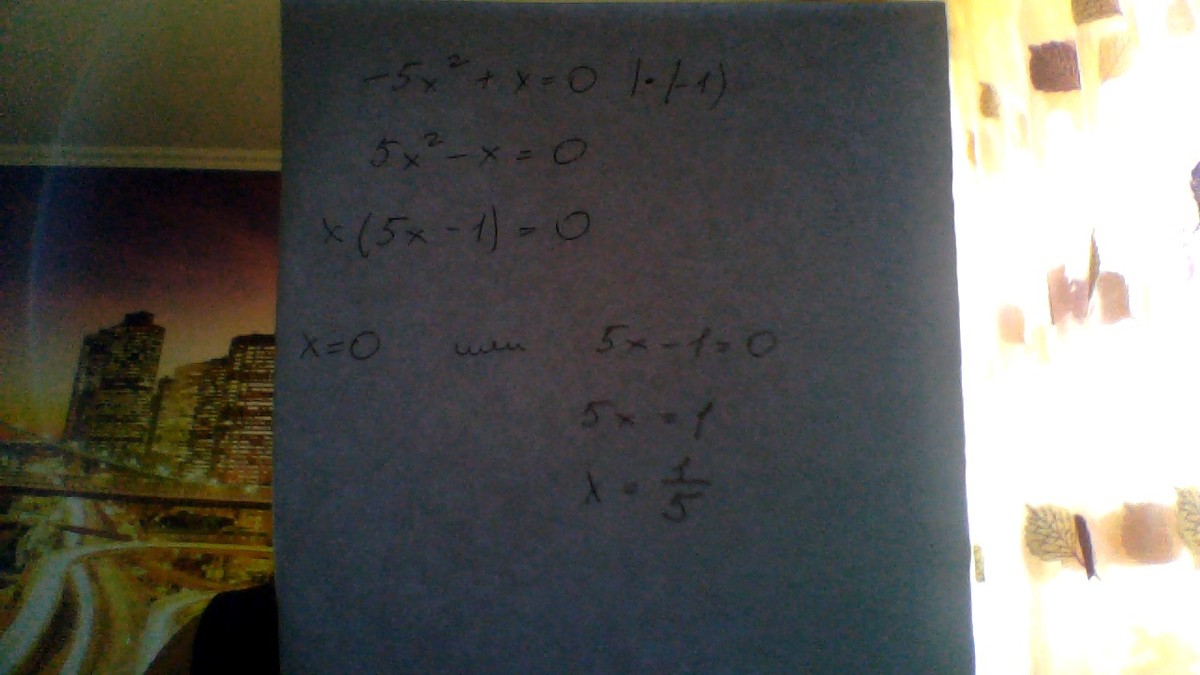 -5x² + x = 0 | · (-1)
5x² - x = 0
x(5x - 1) = 0
x = 0 или 5x - 1 = 0
5x = 1
x = 1/5